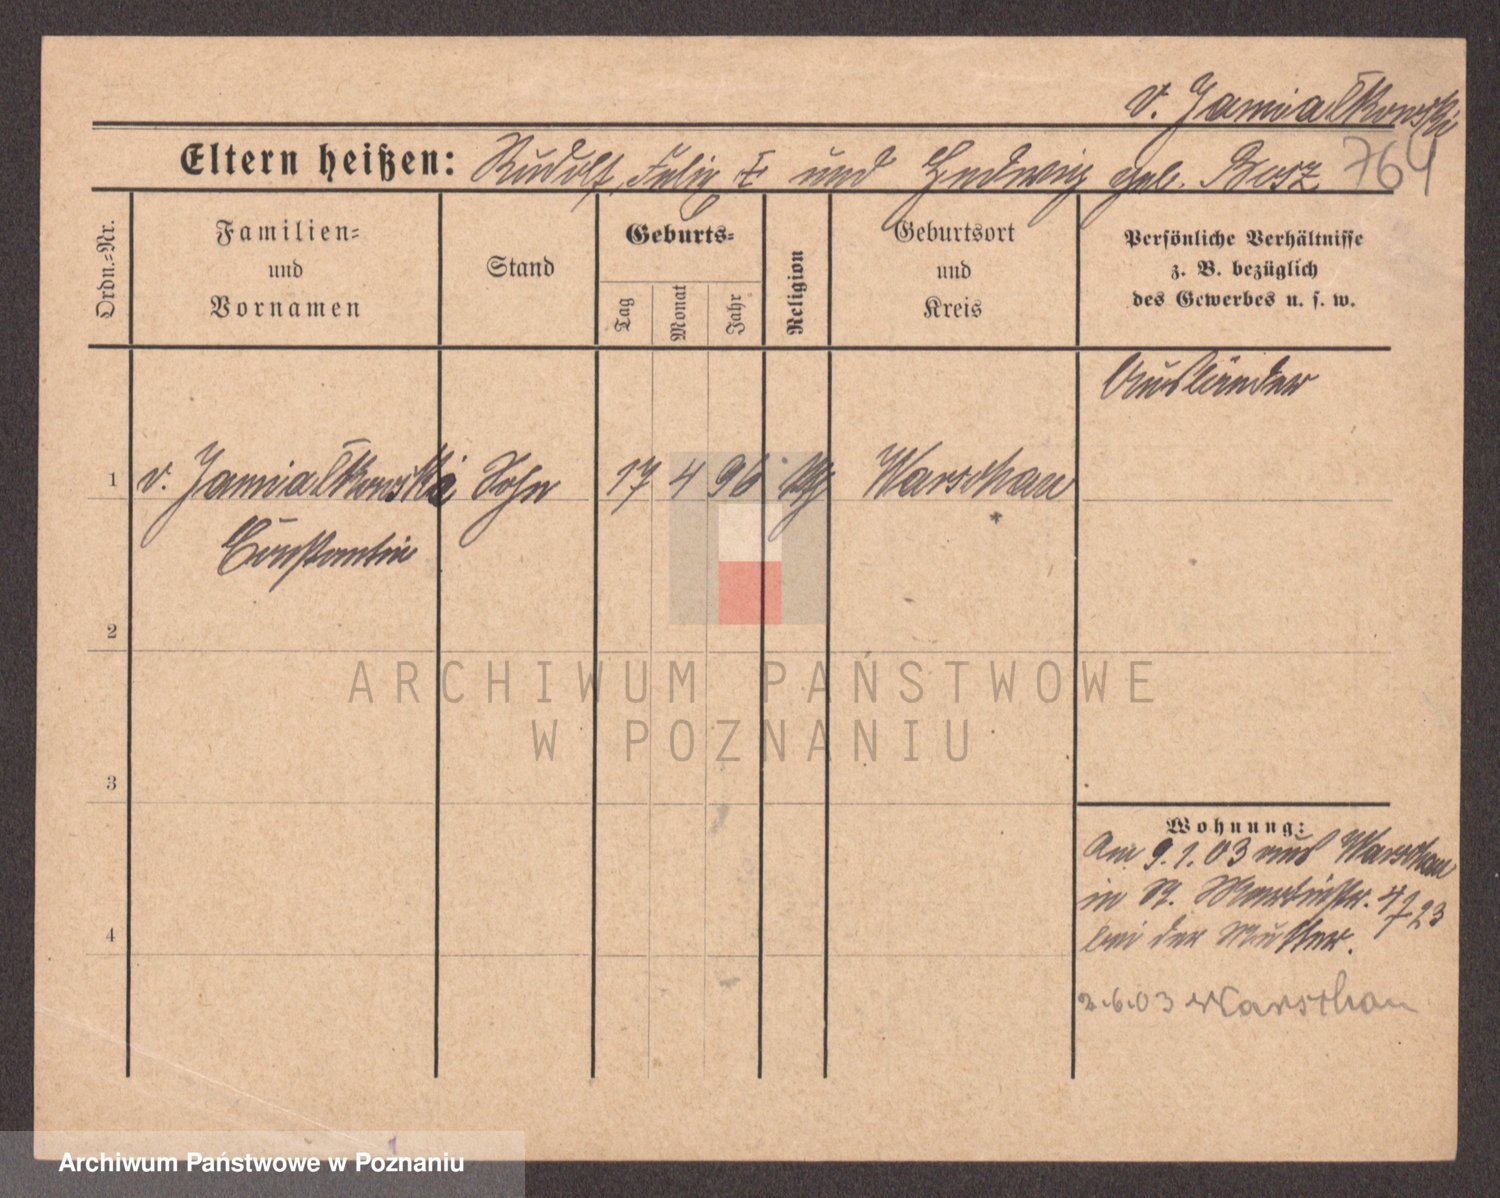 v. Jamiałkowski
Eltern heißen: Rudolf, Felix † und Hedwig geb. 764
Ordn.-Nr.
Familien-
und
Vornamen
Stand
Geburts-
Tag
Monat
Jahr
Religion
Geburtsort
und
Kreis
Persönliche Verhältnisse
z. B. bezüglich
des Gewerbes u. s. w.
Ausländer
1 v. Jamiałkowski Sohn 17 4 96 Warschau
Constantin
2
ARCHIWUM PAŃSTWOWE
W POZNANIU
3
Wohnung:
Am 9.1.03 aus Warschau
in St. Martinstr. 4723
4
bei der Mutter.
2.6.03 Warschau
Archiwum Państwowe w Poznaniu